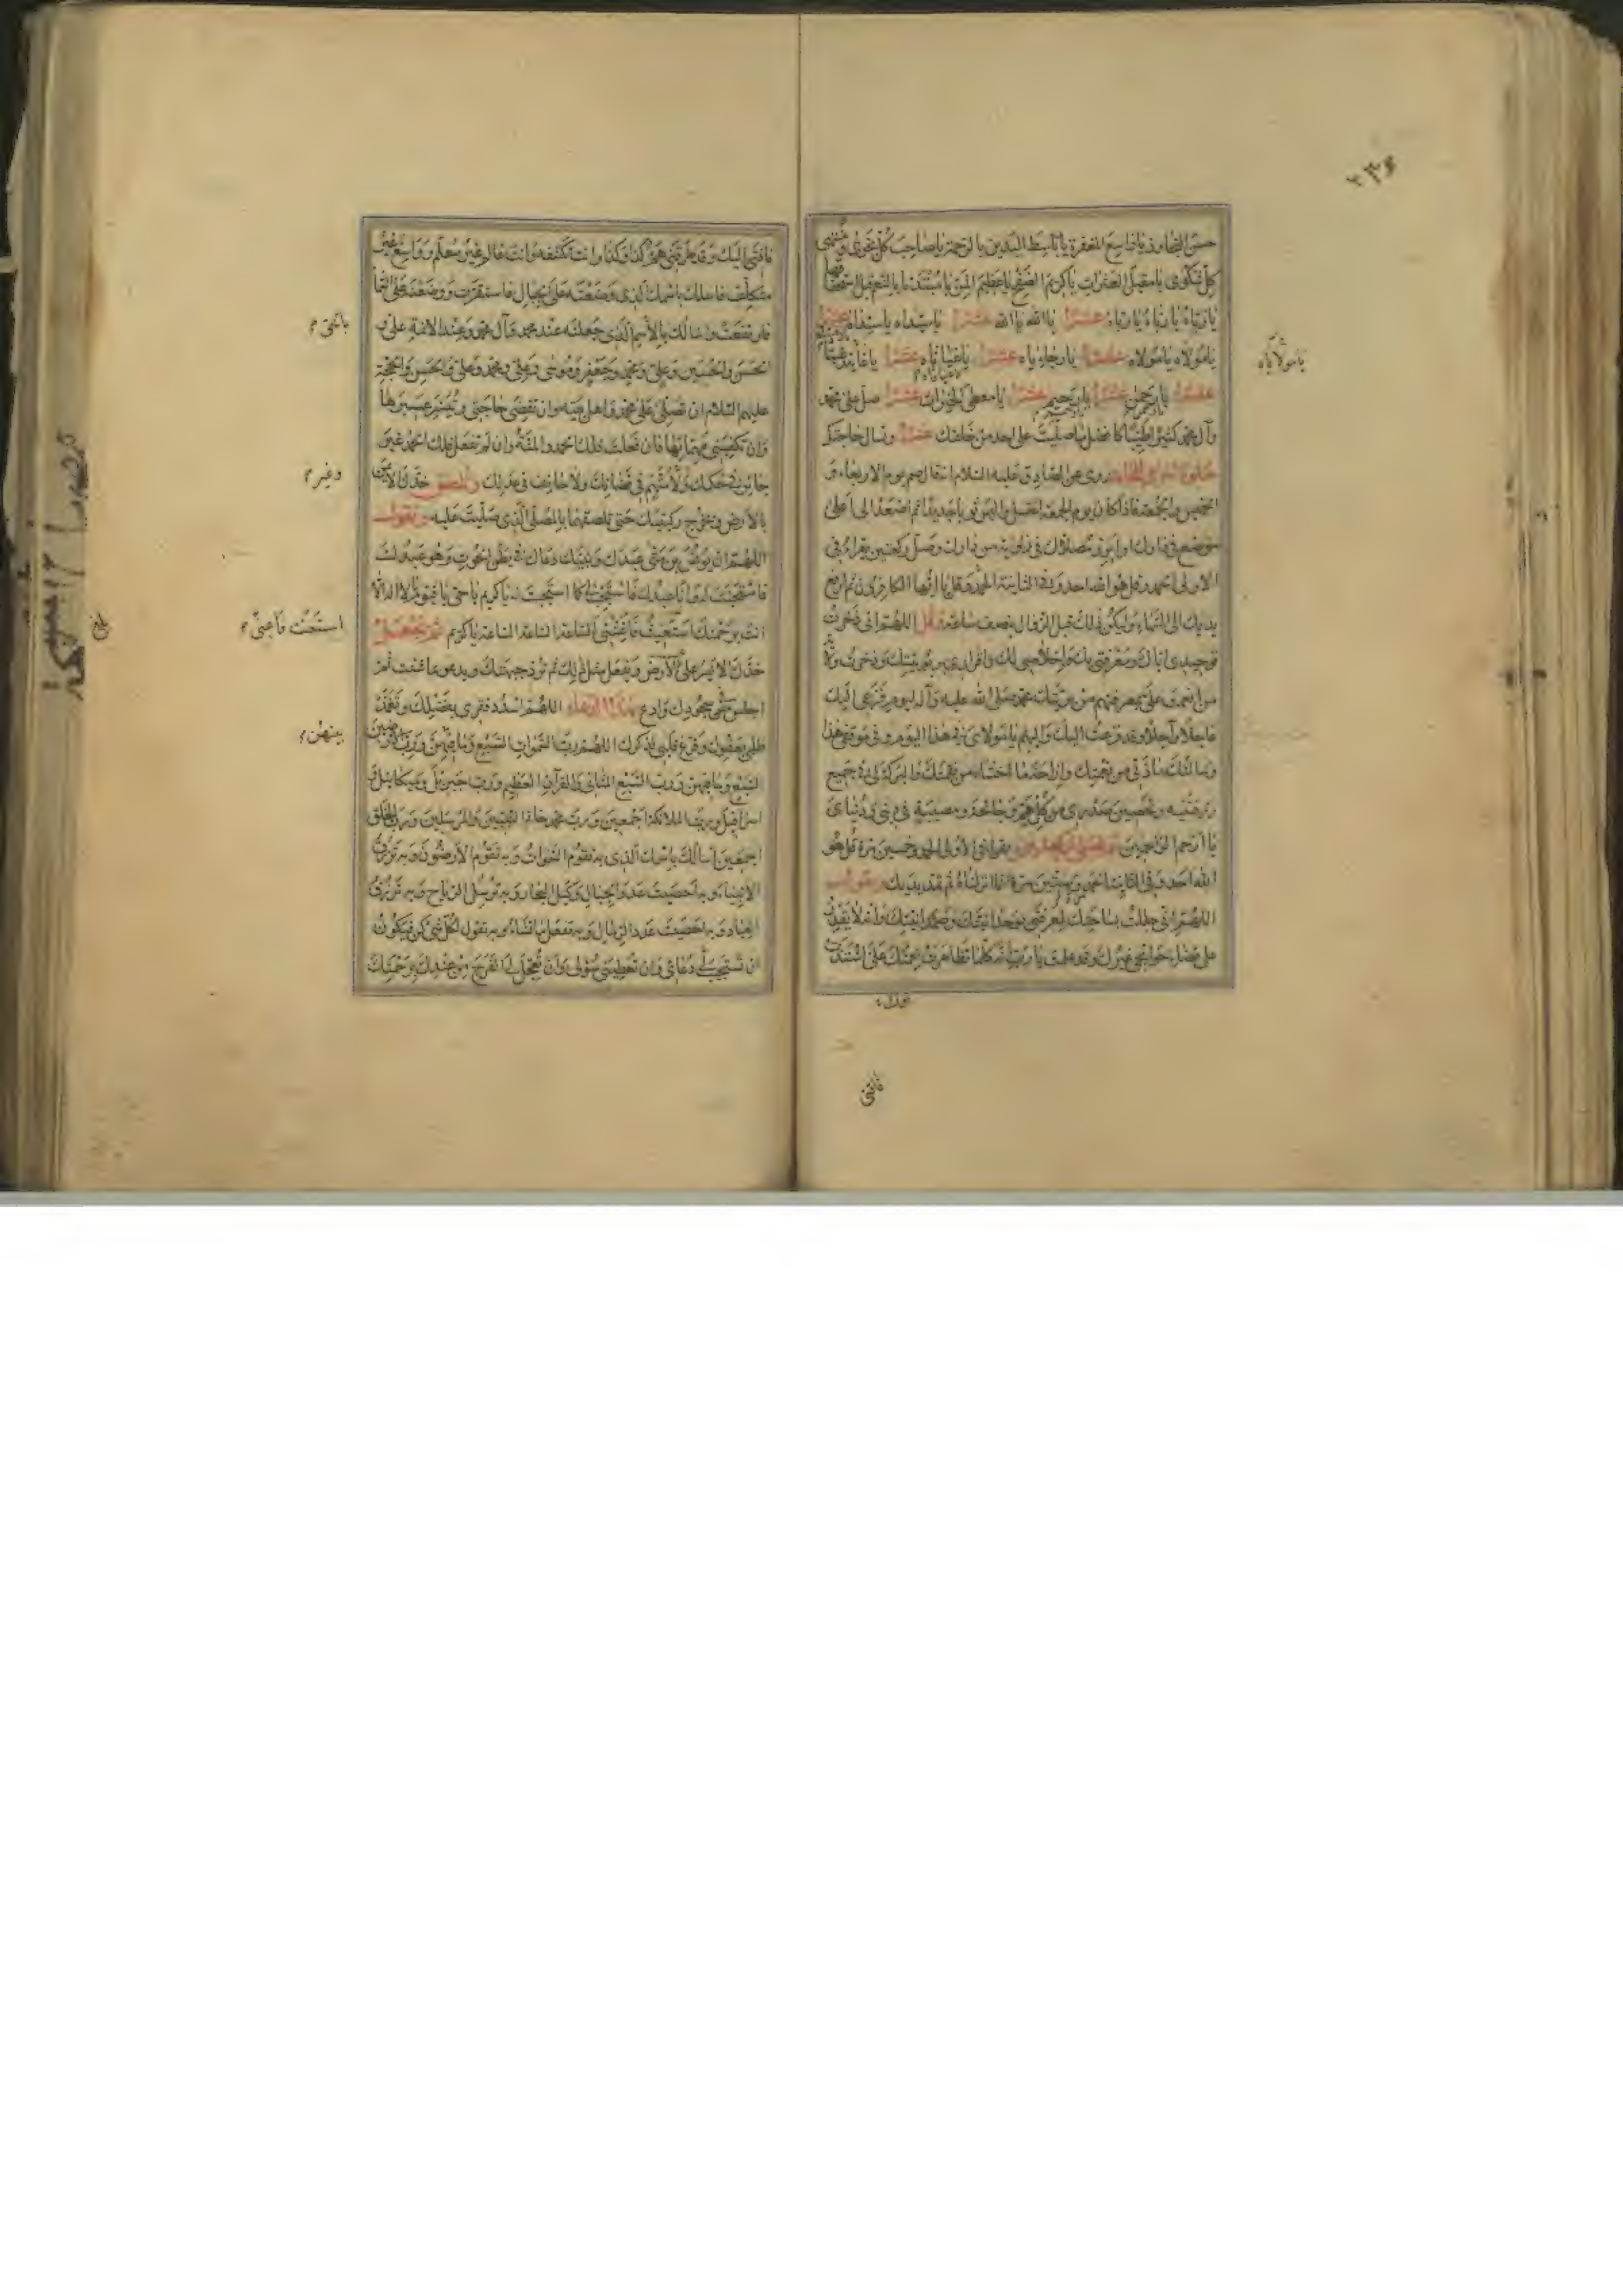 ٢٣۶
حسن التجاوز يا واسع المغفرة يا باسط اليدين بالرحمة يا صاحب كل نجوى ومنتهى
كل شكوى يا مقيل العثرات يا كريم الصفح يا عظيم المن يا مبتدئا بالنعم قبل استحقاقها
يا رباه يا رباه يا رباه عشرا يا الله يا الله عشرا يا سيداه يا سيداه عشرا
يا مولاه يا مولاه عشرا يا رجاياه عشرا يا غياثاه عشرا يا غاية رغبتاه
يا مولاياه
عشرا يا رحمن عشرا يا رحيم عشرا يا معطي الخيرات عشرا صل على محمد
وآل محمد كثيرا طيبا كافضل ما صليت على احد من خلقك عشرا وتسال حاجتك
روى عن الصادق عليه السلام انه قال صم يوم الاربعاء و
الخميس والجمعة فاذا كان يوم الجمعة اغتسل والبس ثوبا جديدا ثم اصعد الى اعلى
موضع في دارك او ابرز مصلاك في زاوية من دارك وصل ركعتين يقراء في
الاولى الحمد وقل هو الله احد وفي الثانية الحمد وقل يا ايها الكافرون ثم ارفع
يديك الى السماء وليكن ذلك قبل الزوال بنصف ساعة وقل اللهم اني ذخرت
توحيدي اياك ومعرفتي بك واخلاصي لك واقراري بربوبيتك وذخرت ولاية
من انعمت علي بمعرفتهم من بريتك محمد صلى الله عليه وآله ليوم فزعي اليك
عاجلا وآجلا وقد فزعت اليك واليهم يا مولاي في هذا اليوم وفي موقفي هذا
وسالتك مادتي من نعمتك وازاحة ما اخشاه من نقمتك والبركة لي في جميع
رزقتنيه وتحصين صدري من كل هم وجائحة ومصيبة في ديني ودنياي
يا ارحم الراحمين وتصلي ركعتين يقراء في الاولى الحمد وخمسين مرة قل هو
الله احد وفي الثانية الحمد وستين مرة انا انزلناه ثم تمد يديك وتقول
اللهم اني حللت بساحتك لمعرفتي بوحدانيتك وصمدانيتك وانه لا يقدر
على قضاء حوائجي غيرك وقد علمت يا رب انه كلما تظاهرت نعمتك علي اشتدت
فاقتي
فاقتي اليك وقد طرقني هم كذا وكذا وانت تكشفه وانت عالم غير معلم وواسع غير
متكلف فاسالك باسمك الذي وضعته على الجبال فاستقرت ووضعته على السماء
فارتفعت واسالك بالاسم الذي جعلته عند محمد وآل محمد وعند الائمة علي و
بالحق
الحسن والحسين وعلي ومحمد وجعفر وموسى وعلي ومحمد وعلي والحسن والحجة
عليهم السلام ان تصلي على محمد واهل بيته وان تقضي حاجتي وتيسر عسيرها
وان تكفيني مهماتها فان فعلت فلك الحمد والمنة وان لم تفعل فلك الحمد غير
وغير
جائر في حكمك ولا متهم في قضائك ولا حائف في عدلك وتلصق خدك الايمن
بالارض وتخرج ركبتيك حتى تلصقهما بالمصلى الذي صليت عليه وتقول
اللهم ان يونس بن متى عبدك ونبيك دعاك في بطن الحوت وهو عبدك
فاستجبت له وانا عبدك فاستجب لي كما استجبت له يا كريم يا حي يا قيوم لا اله الا
انت برحمتك استغيث فاغثني الساعة الساعة الساعة يا كريم ثم تجعل
خدك الايسر على الارض وتفعل مثل ذلك ثم ترد جبهتك وتدعو بما شئت ثم
اجلس من سجودك وادع بهذا الدعاء اللهم اسدد فقري بفضلك وتغمد
ظلمي بعفوك وفرغ قلبي لذكرك اللهم رب السموات السبع وما بينهن ورب الارضين
بينهن
السبع وما فيهن ورب السبع المثاني والقرآن العظيم ورب جبرئيل وميكائيل و
اسرافيل ورب الملائكة اجمعين ورب محمد خاتم النبيين والمرسلين ورب الخلق
اجمعين اسالك باسمك الذي به تقوم السموات وبه تقوم الارضون وبه ترزق
الاحياء وبه احصيت عدد الجبال وكيل البحار وبه ترسل الرياح وبه ترزق
العباد وبه احصيت عدد الرمال وبه تفعل ما تشاء وبه تقول لكل شيء كن فيكون
ان تستجيب لي دعائي وان تعطيني سؤلي وان تعجل لي الفرج من عندك برحمتك